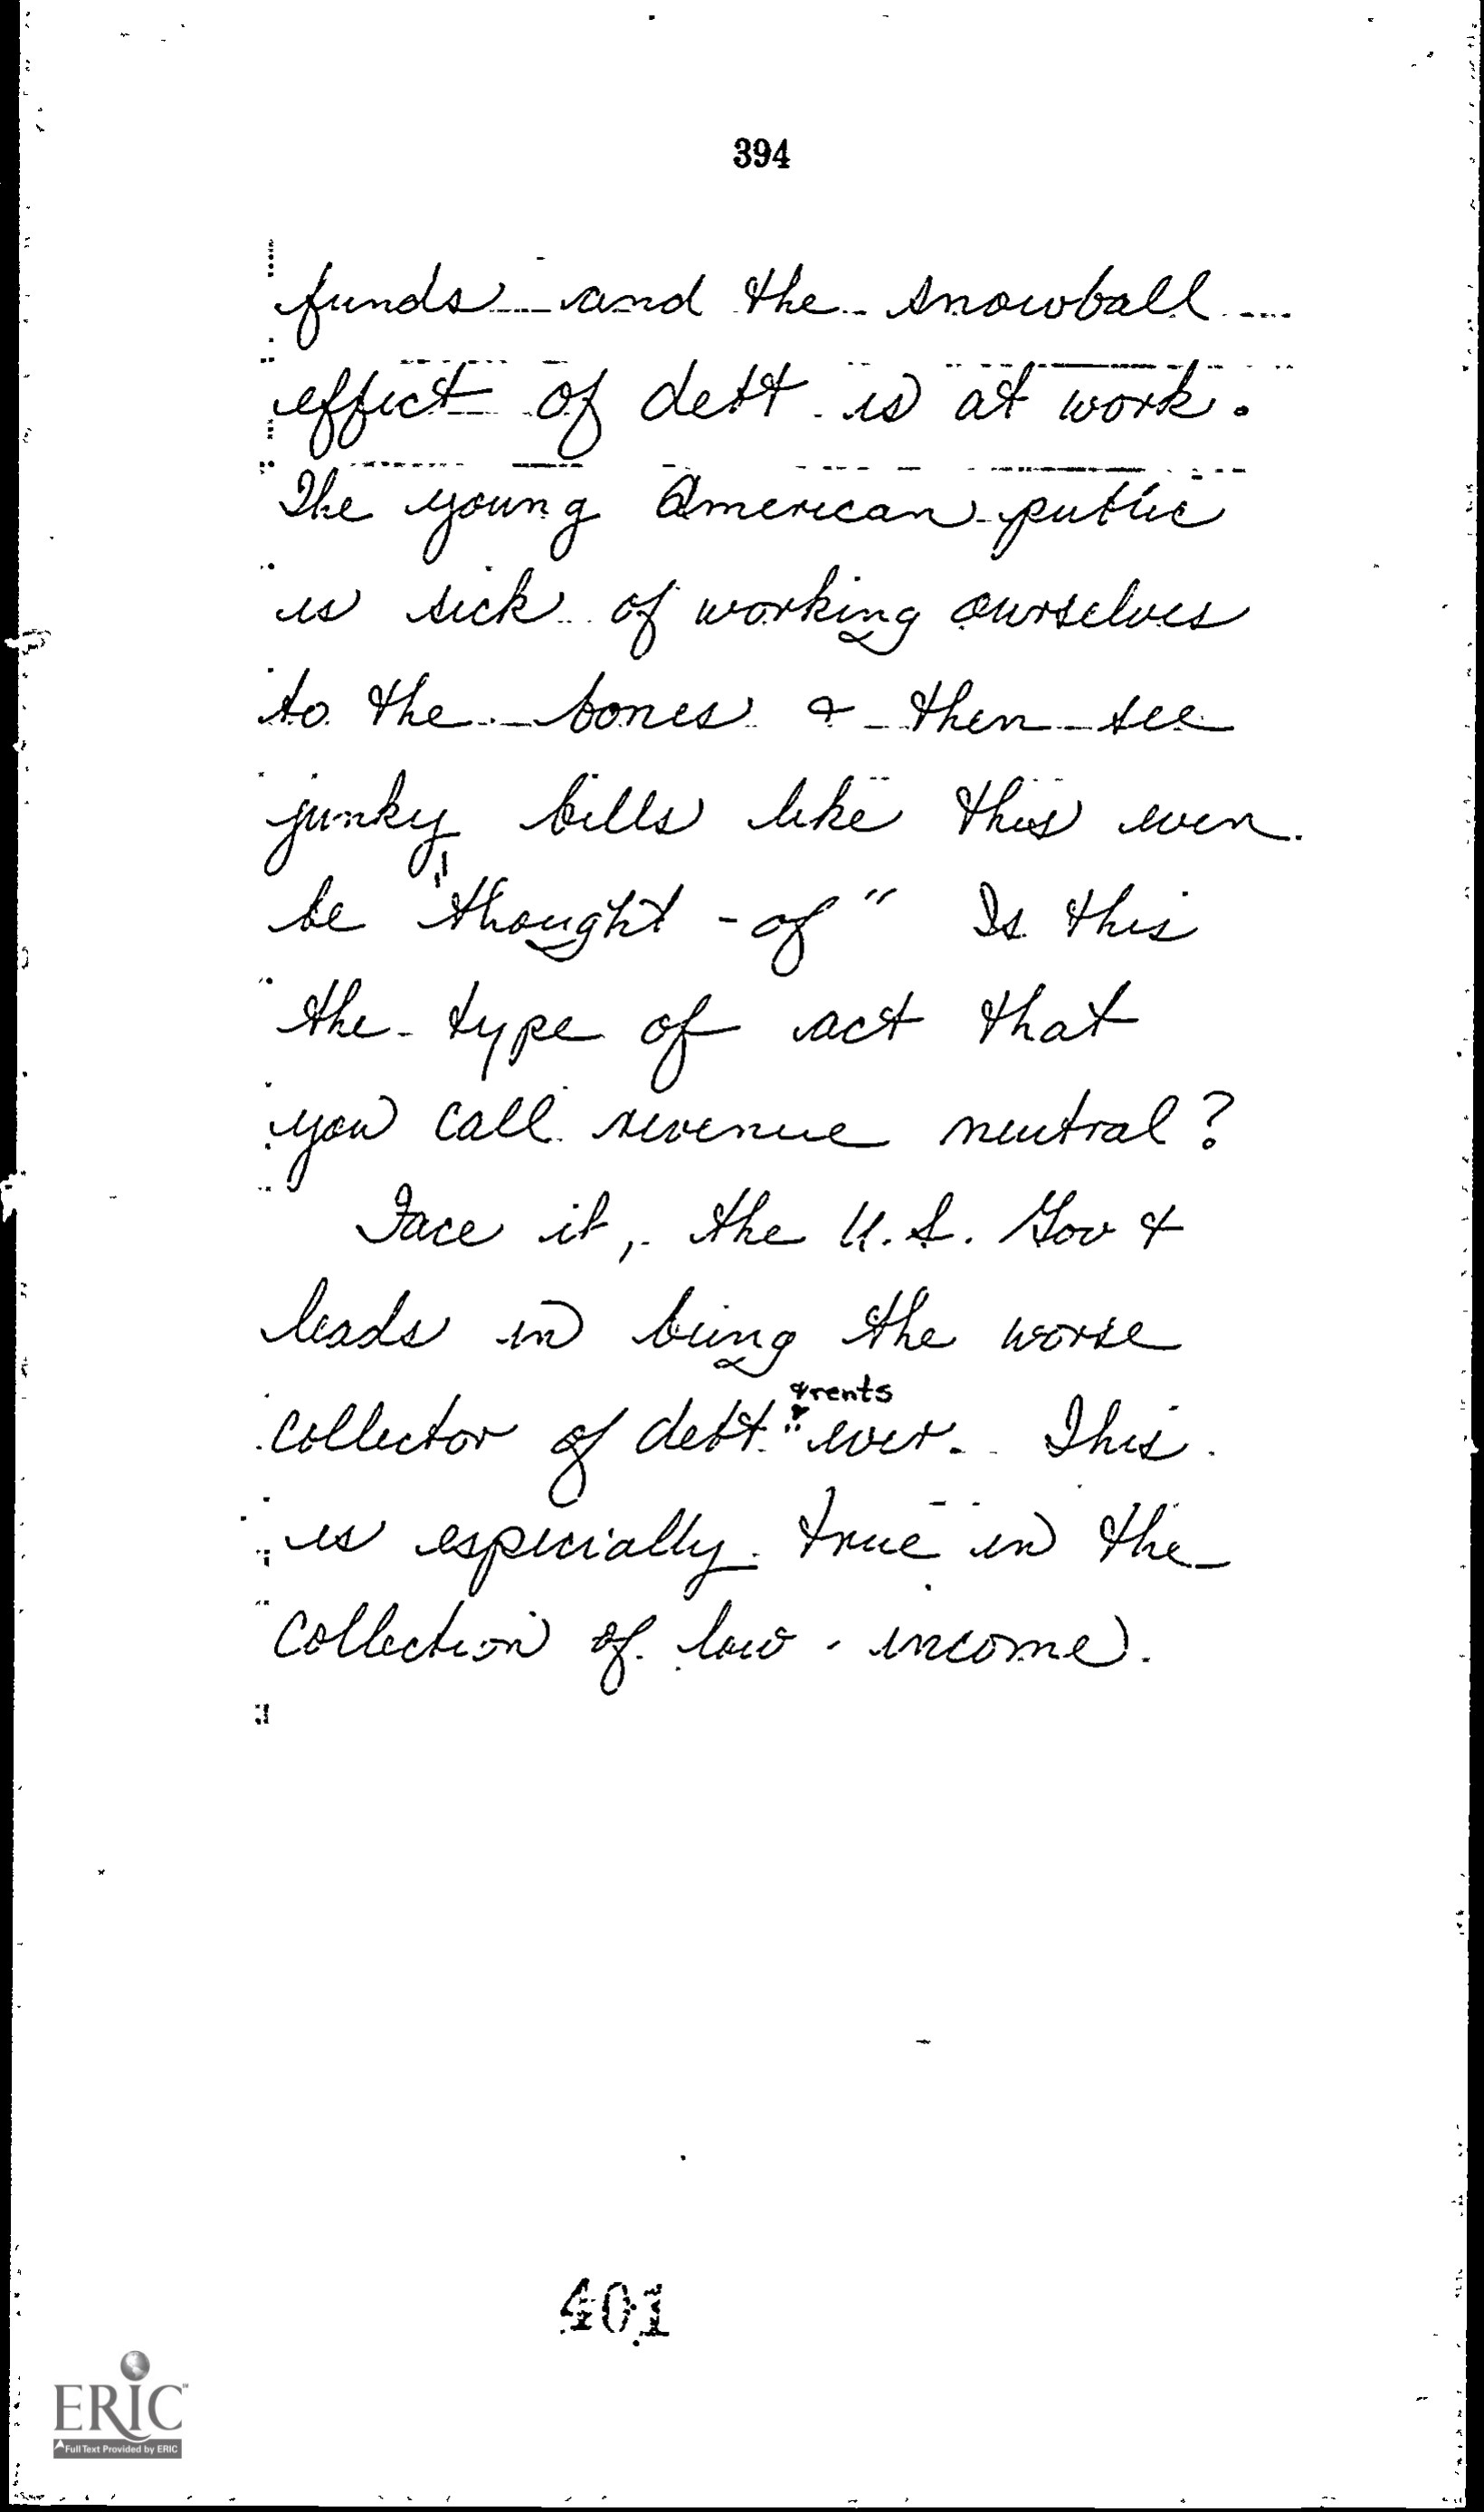 394
funds and the snowball
effect of debt is at work.
The young American public
is sick of working ourselves
to the bones & then see
junky bills like this even
be "thought-of" Is this
the type of act that
you call revenue neutral?
Face it, the U.S. Gov't
leads in being the worse
& rents
collector of debt ever. This
is especially true in the
collection of low-income.
401
ERIC
Full Text Provided by ERIC